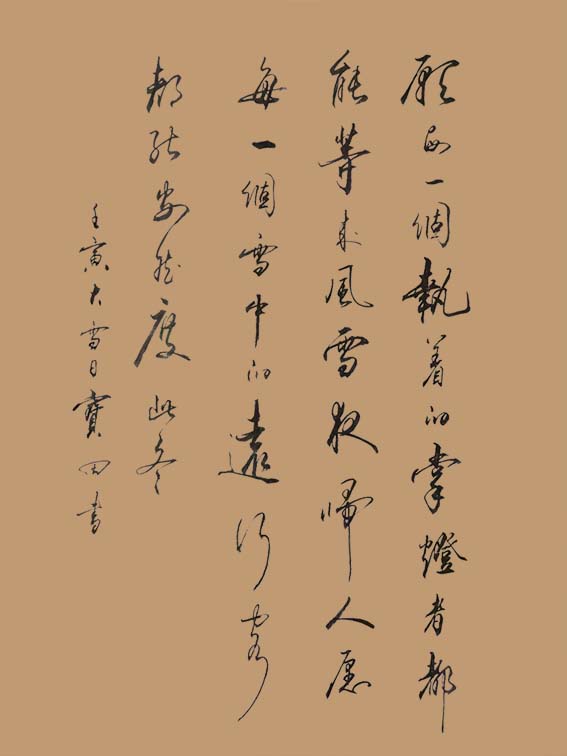 願每一個執着的掌燈者都
能等来風雪夜歸人愿
每一個雪中的遠行客
都能安然度此冬
壬寅大雪日寶田書